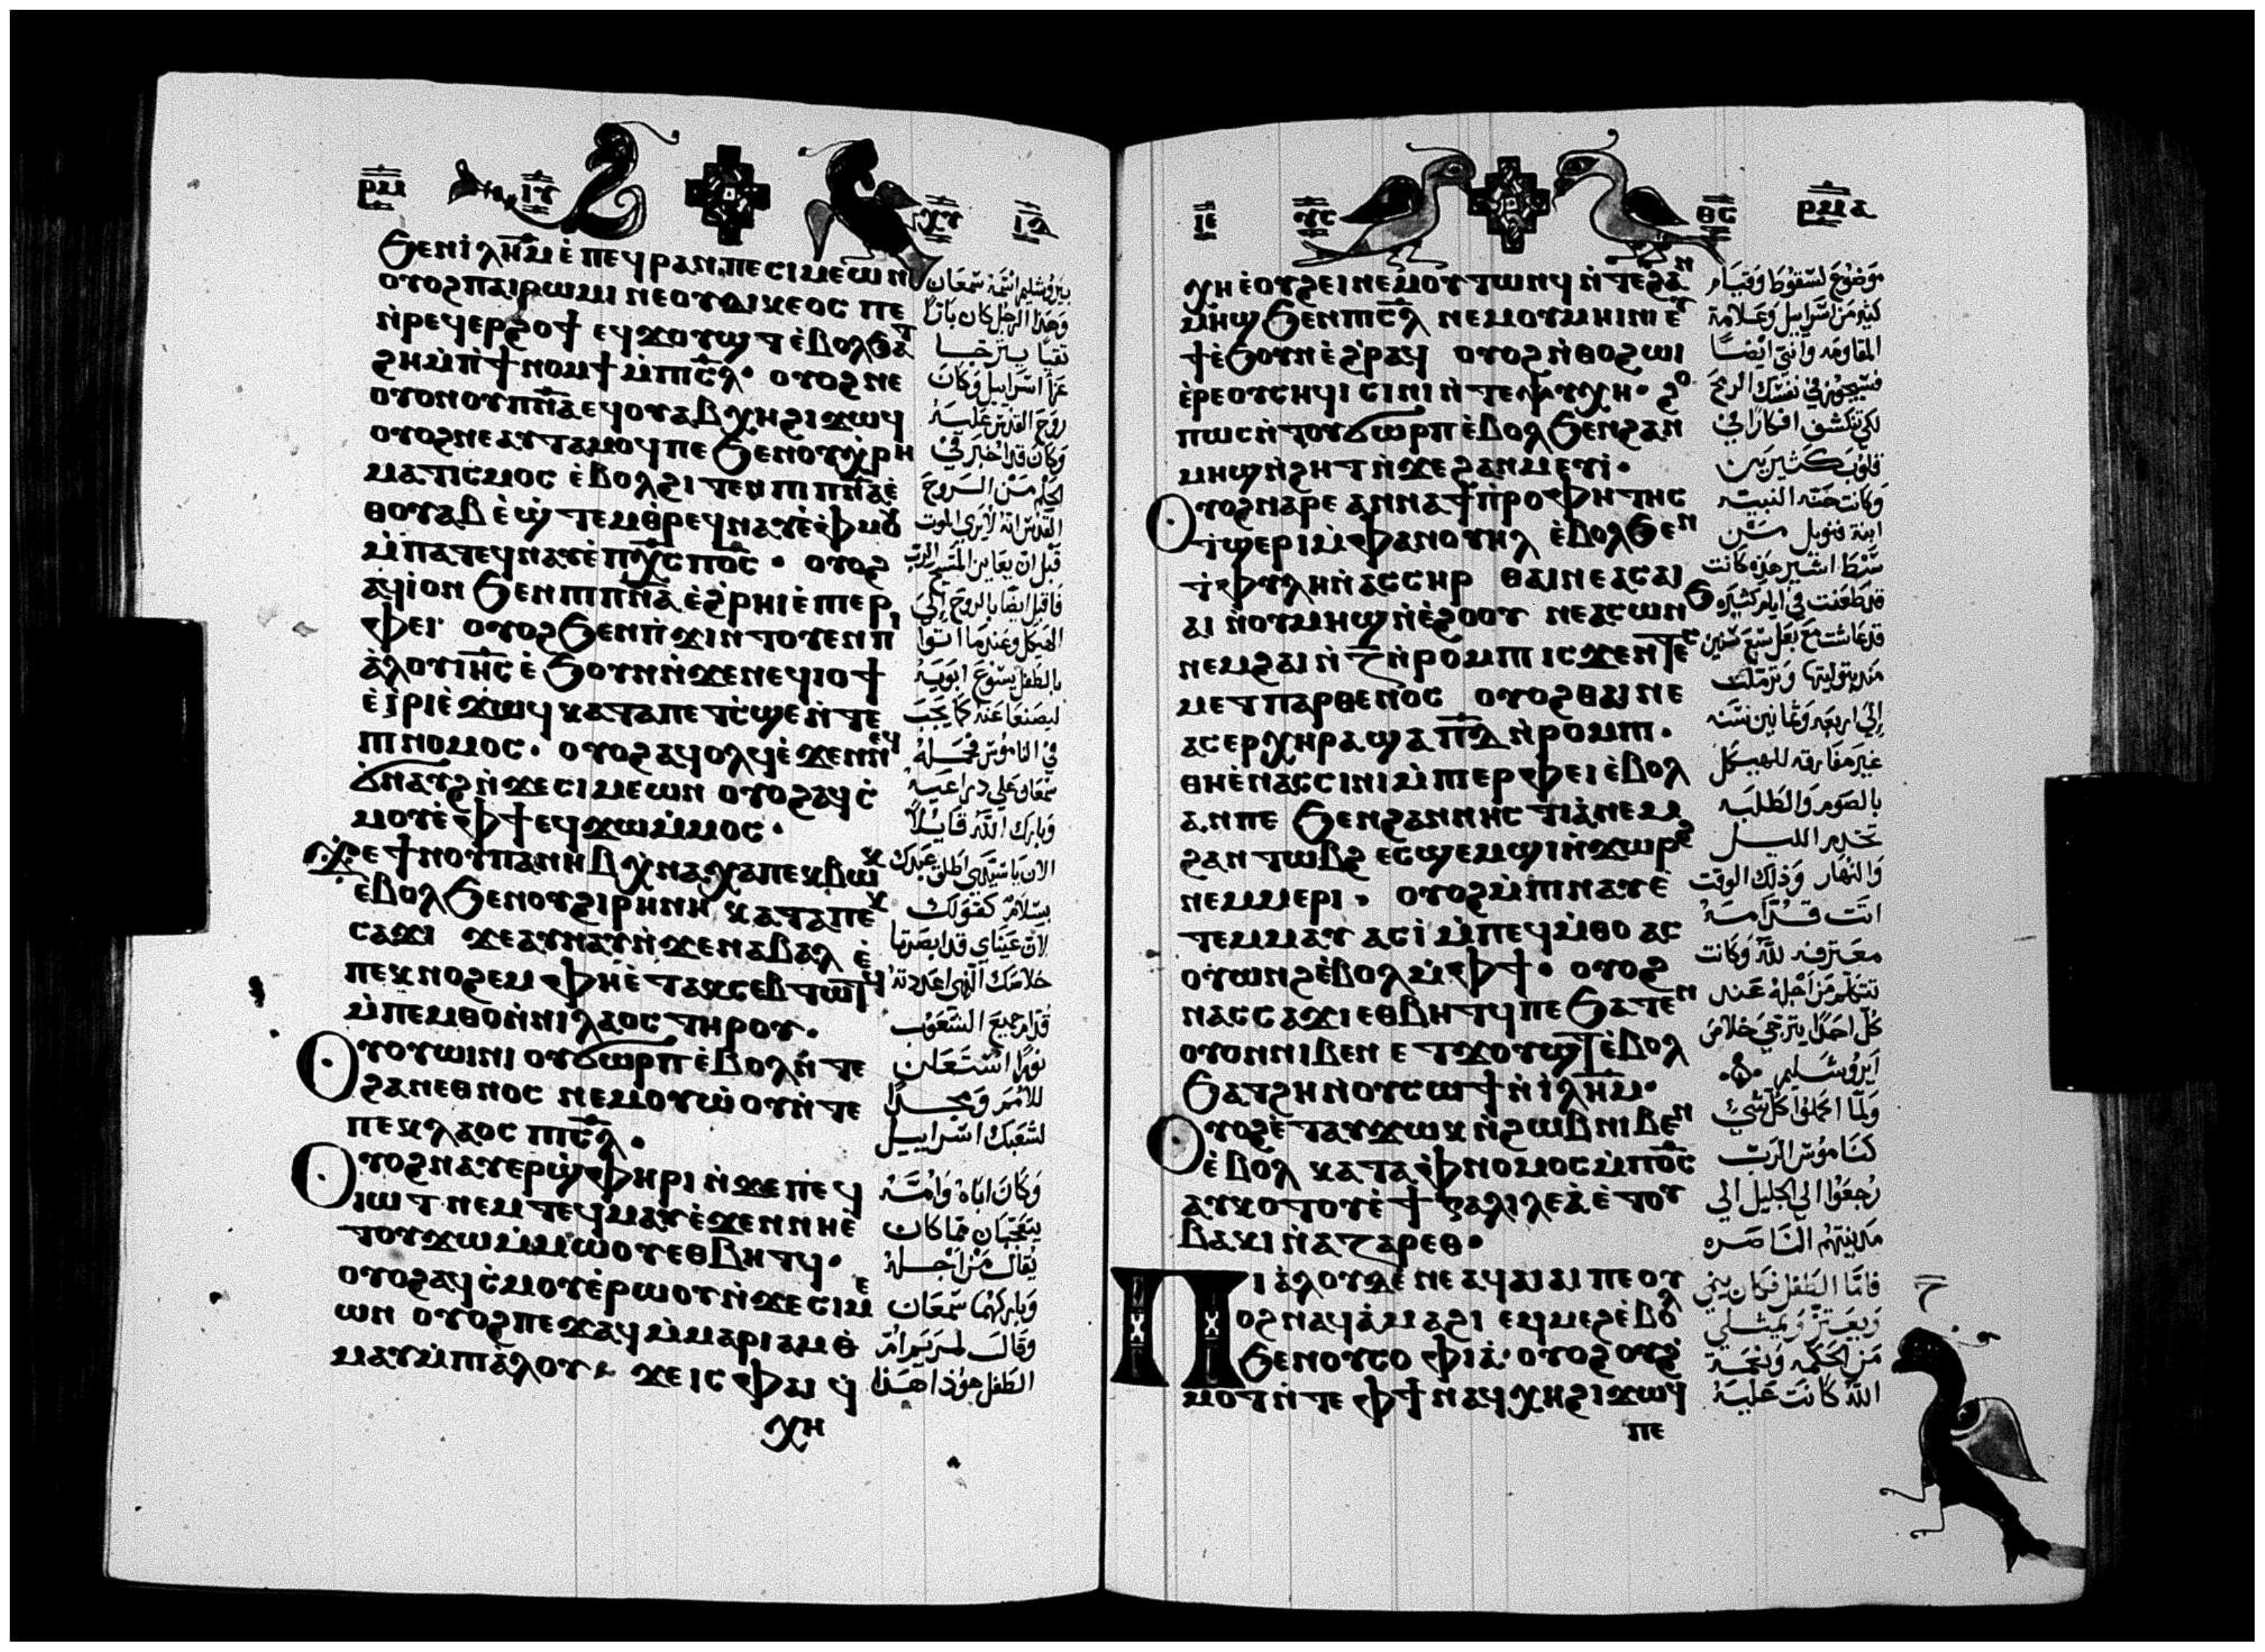 ⲣⲙ ⲓⲩ ⲭⲩ ⲓⲇ
ϧⲉⲛⲓ̀ⲗ̅ⲏ̅ⲙ̅ ⲉ̀ ⲡⲉϥⲣⲁⲛ ⲡⲉ ⲥⲓⲙⲉⲱⲛ
ⲟⲩⲟϩ ⲡⲁⲓⲣⲱⲙⲓ ⲛⲉ ⲟⲩⲇⲓⲕⲉⲟⲥ ⲡⲉ
ⲛ̀ⲣⲉϥⲉⲣϩⲟϯ ⲉϥϫⲟⲩϣⲧ ⲉ̀ⲃⲟⲗϧⲁⲧ
ϩⲏ ⲙ̀ⲡ̀ϯⲛⲟⲙϯ ⲙ̀ⲡⲓⲥ̅ⲗ̅· ⲟⲩⲟϩ ⲛⲉ
ⲟⲩⲟⲛ ⲟⲩⲡ̅ⲛ̅ⲁ̅ ⲉϥⲟⲩⲁⲃ ⲭⲏ ϩⲓϫⲱϥ
ⲟⲩⲟϩ ⲛⲉⲁⲩⲧⲁⲙⲟϥ ⲡⲉ ϧⲉⲛ ⲟⲩⲭ̀ⲣⲏ
ⲙⲁⲧⲓⲥⲙⲟⲥ ⲉ̀ⲃⲟⲗϩⲓⲧⲉⲛ ⲡⲓⲡ̅ⲛ̅ⲁ̅ ⲉ̀
ⲑⲟⲩⲁⲃ ⲉ̀ϣ̀ⲧⲉⲙⲑ̀ⲣⲉϥⲛⲁⲩ ⲉ̀ⲫ̀ⲙⲟⲩ
ⲙ̀ⲡⲁⲧⲉϥⲛⲁⲩ ⲉ̀ⲡⲭ̅ⲥ̅ ⲡⲟ̅ⲥ̅· ⲟⲩⲟϩ
ⲁϥⲓ̀ⲟⲛ ϧⲉⲛ ⲡⲓⲡ̅ⲛ̅ⲁ̅ ⲉ̀ϩ̀ⲣⲏⲓ ⲉ̀ⲡⲓⲉⲣ
ⲫⲉⲓ· ⲟⲩⲟϩ ϧⲉⲛ ⲡ̀ϫⲓⲛⲧⲟⲩⲉⲛ ⲡⲓ
ⲁ̀ⲗⲟⲩ ⲓⲏ̅ⲥ̅ ⲉ̀ϧⲟⲩⲛ ⲛ̀ϫⲉ ⲛⲉϥⲓⲟϯ
ⲉ̀ⲓ̀ⲣⲓ ⲉ̀ϫⲱϥ ⲕⲁⲧⲁ ⲡⲉⲧⲥ̀ϣⲉ ⲛ̀ⲧⲉ
ⲡⲓⲛⲟⲙⲟⲥ· ⲟⲩⲟϩ ⲁϥⲟⲗϥ ⲉ̀ϫⲉⲛ ⲛⲉϥ
ϭ̀ⲛⲁⲩϩ ⲛ̀ϫⲉ ⲥⲓⲙⲉⲱⲛ ⲟⲩⲟϩ ⲁϥⲥ̀
ⲙⲟⲩ ⲉ̀ⲫϯ ⲉϥϫⲱ ⲙ̀ⲙⲟⲥ·
ϫⲉ ϯⲛⲟⲩ ⲡⲁⲛⲏⲃ ⲭ̀ⲛⲁⲭⲁ ⲡⲉⲕⲃⲱⲕ
ⲉ̀ⲃⲟⲗ ϧⲉⲛ ⲟⲩϩⲓⲣⲏⲛⲏ ⲕⲁⲧⲁ ⲡⲉⲕ
ⲥⲁϫⲓ ϫⲉ ⲁⲩⲛⲁⲩ ⲛ̀ϫⲉ ⲛⲁⲃⲁⲗ ⲉ̀
ⲡⲉⲕⲛⲟϩⲉⲙ ⲫⲏ ⲉ̀ⲧⲁⲕⲥⲉⲃⲧⲱⲧϥ
ⲙ̀ⲡⲉⲙⲑⲟ ⲛ̀ⲛⲓⲗⲁⲟⲥ ⲧⲏⲣⲟⲩ·
ⲟⲩⲟⲩⲱⲓⲛⲓ ⲟⲩϭⲱⲣⲡ ⲉ̀ⲃⲟⲗ ⲛ̀ⲧⲉ
ϩⲁⲛⲉⲑⲛⲟⲥ ⲛⲉⲙ ⲟⲩⲱ̀ⲟⲩ ⲛ̀ⲧⲉ
ⲡⲉⲕⲗⲁⲟⲥ ⲡⲓⲥ̅ⲗ̅·
ⲟⲩⲟϩ ⲛⲁⲩⲉⲣϣ̀ⲫⲏⲣⲓ ⲛ̀ϫⲉ ⲡⲉϥ
ⲓⲱⲧ ⲛⲉⲙ ⲧⲉϥⲙⲁⲩ ⲉ̀ϫⲉⲛ ⲛⲏ ⲉ̀
ⲧⲟⲩϫⲱ ⲙ̀ⲙⲱⲟⲩ ⲉⲑⲃⲏⲧϥ·
ⲟⲩⲟϩ ⲁϥⲥ̀ⲙⲟⲩ ⲉ̀ⲣⲱⲟⲩ ⲛ̀ϫⲉ ⲥⲓⲙⲉ
ⲱⲛ ⲟⲩⲟϩ ⲡⲉϫⲁϥ ⲙ̀ⲙⲁⲣⲓⲁⲙ ⲑ̀
ⲙⲁⲩ ⲙ̀ⲡⲓⲁ̀ⲗⲟⲩ ϫⲉ ⲓⲥ ⲫⲁⲓ ϥ̀
ⲭⲏ
بيروشليم اسمه سمعان
وهذا الرجل كان بارًا
تقيًا يترجا
عزا اسراييل وكان
روح القدس عليه
وكان قد اخبر في
الحلم من الروح
القدس انه لا يرى الموت
قبل ان يعاين المسيح الرب
فاقبل ايضا بالروح إلى
الهيكل وعندما اتوا
بالطفل يسوع ابويه
ليصنعا عنه كما يجب
في الناموس فحمله
سمعان على دراعيه
وبارك الله قايلًا
الان يا سيدي اطلق عبدك
بسلام كقولك
لان عيناي قد ابصرتا
خلاصك الذي اعددته
قدام جميع الشعوب
نورًا استعلن
للامم ومجدًا
لشعبك اسراييل
وكان اباه وامه
يتعجبان مما كان
يقال من اجله
وباركهما سمعان
وقال لمريم ام
الطفل هوذا هذا
ⲓⲉ ⲩⲥ ⲑⲥ ⲣⲙⲁ
ⲭⲏ ⲉ̀ⲟⲩϩⲉⲓ ⲛⲉⲙ ⲟⲩⲧⲱⲛϥ ⲛ̀ⲧⲉ ϩⲁⲛ
ⲙⲏϣ ϧⲉⲛ ⲡⲓⲥ̅ⲗ̅ ⲛⲉⲙ ⲟⲩⲙⲏⲓⲛⲓ ⲉⲩ
ϯ ⲉ̀ϧⲟⲩⲛ ⲉ̀ϩ̀ⲣⲁϥ ⲟⲩⲟϩ ⲛ̀ⲑⲟ ϩⲱⲓ
ⲉ̀ⲣⲉ ⲟⲩⲥⲏϥⲓ ⲥⲓⲛⲓ ⲛ̀ⲧⲉⲯⲩⲭⲏ· ϩⲟ
ⲡⲱⲥ ⲛ̀ⲧⲟⲩϭⲱⲣⲡ ⲉ̀ⲃⲟⲗ ϧⲉⲛ ϩⲁⲛ
ⲙⲏϣ ⲛ̀ϩⲏⲧ ⲛ̀ϫⲉ ϩⲁⲛⲙⲉⲩⲓ·
ⲟⲩⲟϩ ⲛⲁⲣⲉ ⲁⲛⲛⲁ ϯⲡ̀ⲣⲟⲫⲏⲧⲏⲥ
ⲧ̀ϣⲉⲣⲓ ⲙ̀ⲫⲁⲛⲟⲩⲏⲗ ⲉ̀ⲃⲟⲗϧⲉⲛ
ⲧ̀ⲫⲩⲗⲏ ⲛ̀ⲁⲥⲥⲏⲣ ⲑⲁⲓ ⲛⲉ ⲁⲥⲁⲓ
ⲁⲓ ⲛ̀ⲟⲩⲙⲏϣ ⲛ̀ⲉ̀ϩⲟⲟⲩ ⲛⲉⲁⲥⲱⲛϧ
ⲛⲉⲙ ϩⲁⲓ ⲛ̀ⲍ̅ ⲛ̀ⲣⲟⲙⲡⲓ ⲓⲥϫⲉⲛ ⲧⲉⲥ
ⲙⲉⲧⲡⲁⲣⲑⲉⲛⲟⲥ ⲟⲩⲟϩ ⲑⲁⲓ ⲛⲉ
ⲁⲥⲉⲣⲭⲏⲣⲁ ϣⲁ ⲡ̅ⲇ̅ ⲛ̀ⲣⲟⲙⲡⲓ·
ⲑⲏ ⲉ̀ⲛⲁⲥⲥⲓⲛⲓ ⲙ̀ⲡⲓⲉⲣⲫⲉⲓ ⲉ̀ⲃⲟⲗ
ⲁⲛ ⲡⲉ ϧⲉⲛ ϩⲁⲛⲛⲏⲥⲧⲓⲁ̀ ⲛⲉⲙ
ϩⲁⲛⲧⲱⲃϩ ⲉⲥϣⲉⲙϣⲓ ⲛ̀ϫⲱⲣϩ
ⲛⲉⲙⲙⲉⲣⲓ· ⲟⲩⲟϩ ⲙ̀ⲡⲓⲛⲁⲩ ⲉ̀
ⲧⲉⲙⲙⲁⲩ ⲁⲥⲓ̀ ⲙ̀ⲡⲉϥⲙ̀ⲑⲟ ⲁⲥ
ⲟⲩⲱⲛϩ ⲉ̀ⲃⲟⲗ ⲙ̀ⲫϯ· ⲟⲩⲟϩ
ⲛⲁⲥⲥⲁϫⲓ ⲉⲑⲃⲏⲧϥ ⲡⲉ ϧⲁⲧⲉⲛ
ⲟⲩⲟⲛ ⲛⲓⲃⲉⲛ ⲉⲧϫⲟⲩϣⲧ ⲉ̀ⲃⲟⲗ
ϧⲁⲧϩⲏ ⲛⲟⲩⲥⲱϯ ⲛ̀ⲓ̀ⲗ̅ⲏ̅ⲙ̅·
ⲟⲩⲟϩ ⲉ̀ⲧⲁⲩϫⲱⲕ ⲛ̀ϩⲱⲃ ⲛⲓⲃⲉⲛ
ⲉ̀ⲃⲟⲗ ⲕⲁⲧⲁ ⲫ̀ⲛⲟⲙⲟⲥ ⲙ̀ⲡⲟ̅ⲥ̅
ⲁⲩⲕⲟⲧⲟⲩ ⲉ̀ϯⲅⲁⲗⲓⲗⲉⲁ̀ ⲉ̀ⲧⲟⲩ
ⲃⲁⲕⲓ ⲛⲁⲍⲁⲣⲉⲑ·
ⲡⲓⲁ̀ⲗⲟⲩ ⲇⲉ ⲛⲉ ⲁϥⲁⲓⲁⲓ ⲡⲉ ⲟⲩ
ⲟϩ ⲛⲁϥⲁ̀ⲙⲁϩⲓ ⲉϥⲙⲉϩ ⲉ̀ⲃⲟⲗ
ϧⲉⲛ ⲟⲩⲥⲟⲫⲓⲁ̀· ⲟⲩⲟϩ ⲟⲩϩ̀
ⲙⲟⲧ ⲛ̀ⲧⲉ ⲫϯ ⲛⲁϥⲭⲏ ϩⲓϫⲱϥ
ⲡⲉ
موضوع لسقوط وقيام
كثير من اسراييل وعلامة
المقاومه وانتي ايضًا
فسيجوز في نفسك الرمح
لكي تنكشف افكارًا في
قلوب كثيرين
وكانت حنه النبيه
ابنة فنويل من
سبط اشير هذه كانت
قد طعنت في ايام كثيره
قد عاشت مع بعل سبع سنين
منذ بتوليتها وترملت
إلى اربعه وثمانين سنه
غير مفارقه للهيكل
بالصوم والطلبه
تخدم الليل
والنهار وذلك الوقت
اتت قدامه
معترفه لله وكانت
تتكلم من اجله عند
كل احدًا يترجى خلاص
ايروشليم
ولما اكملوا كل شيء
كناموس الرب
رجعوا الى الجليل الي
مدينتهم الناصره
فاما الطفل فكان ينمي
ويعتز ويمتلي
من الحكمه ونعمة
الله كانت عليه
ح